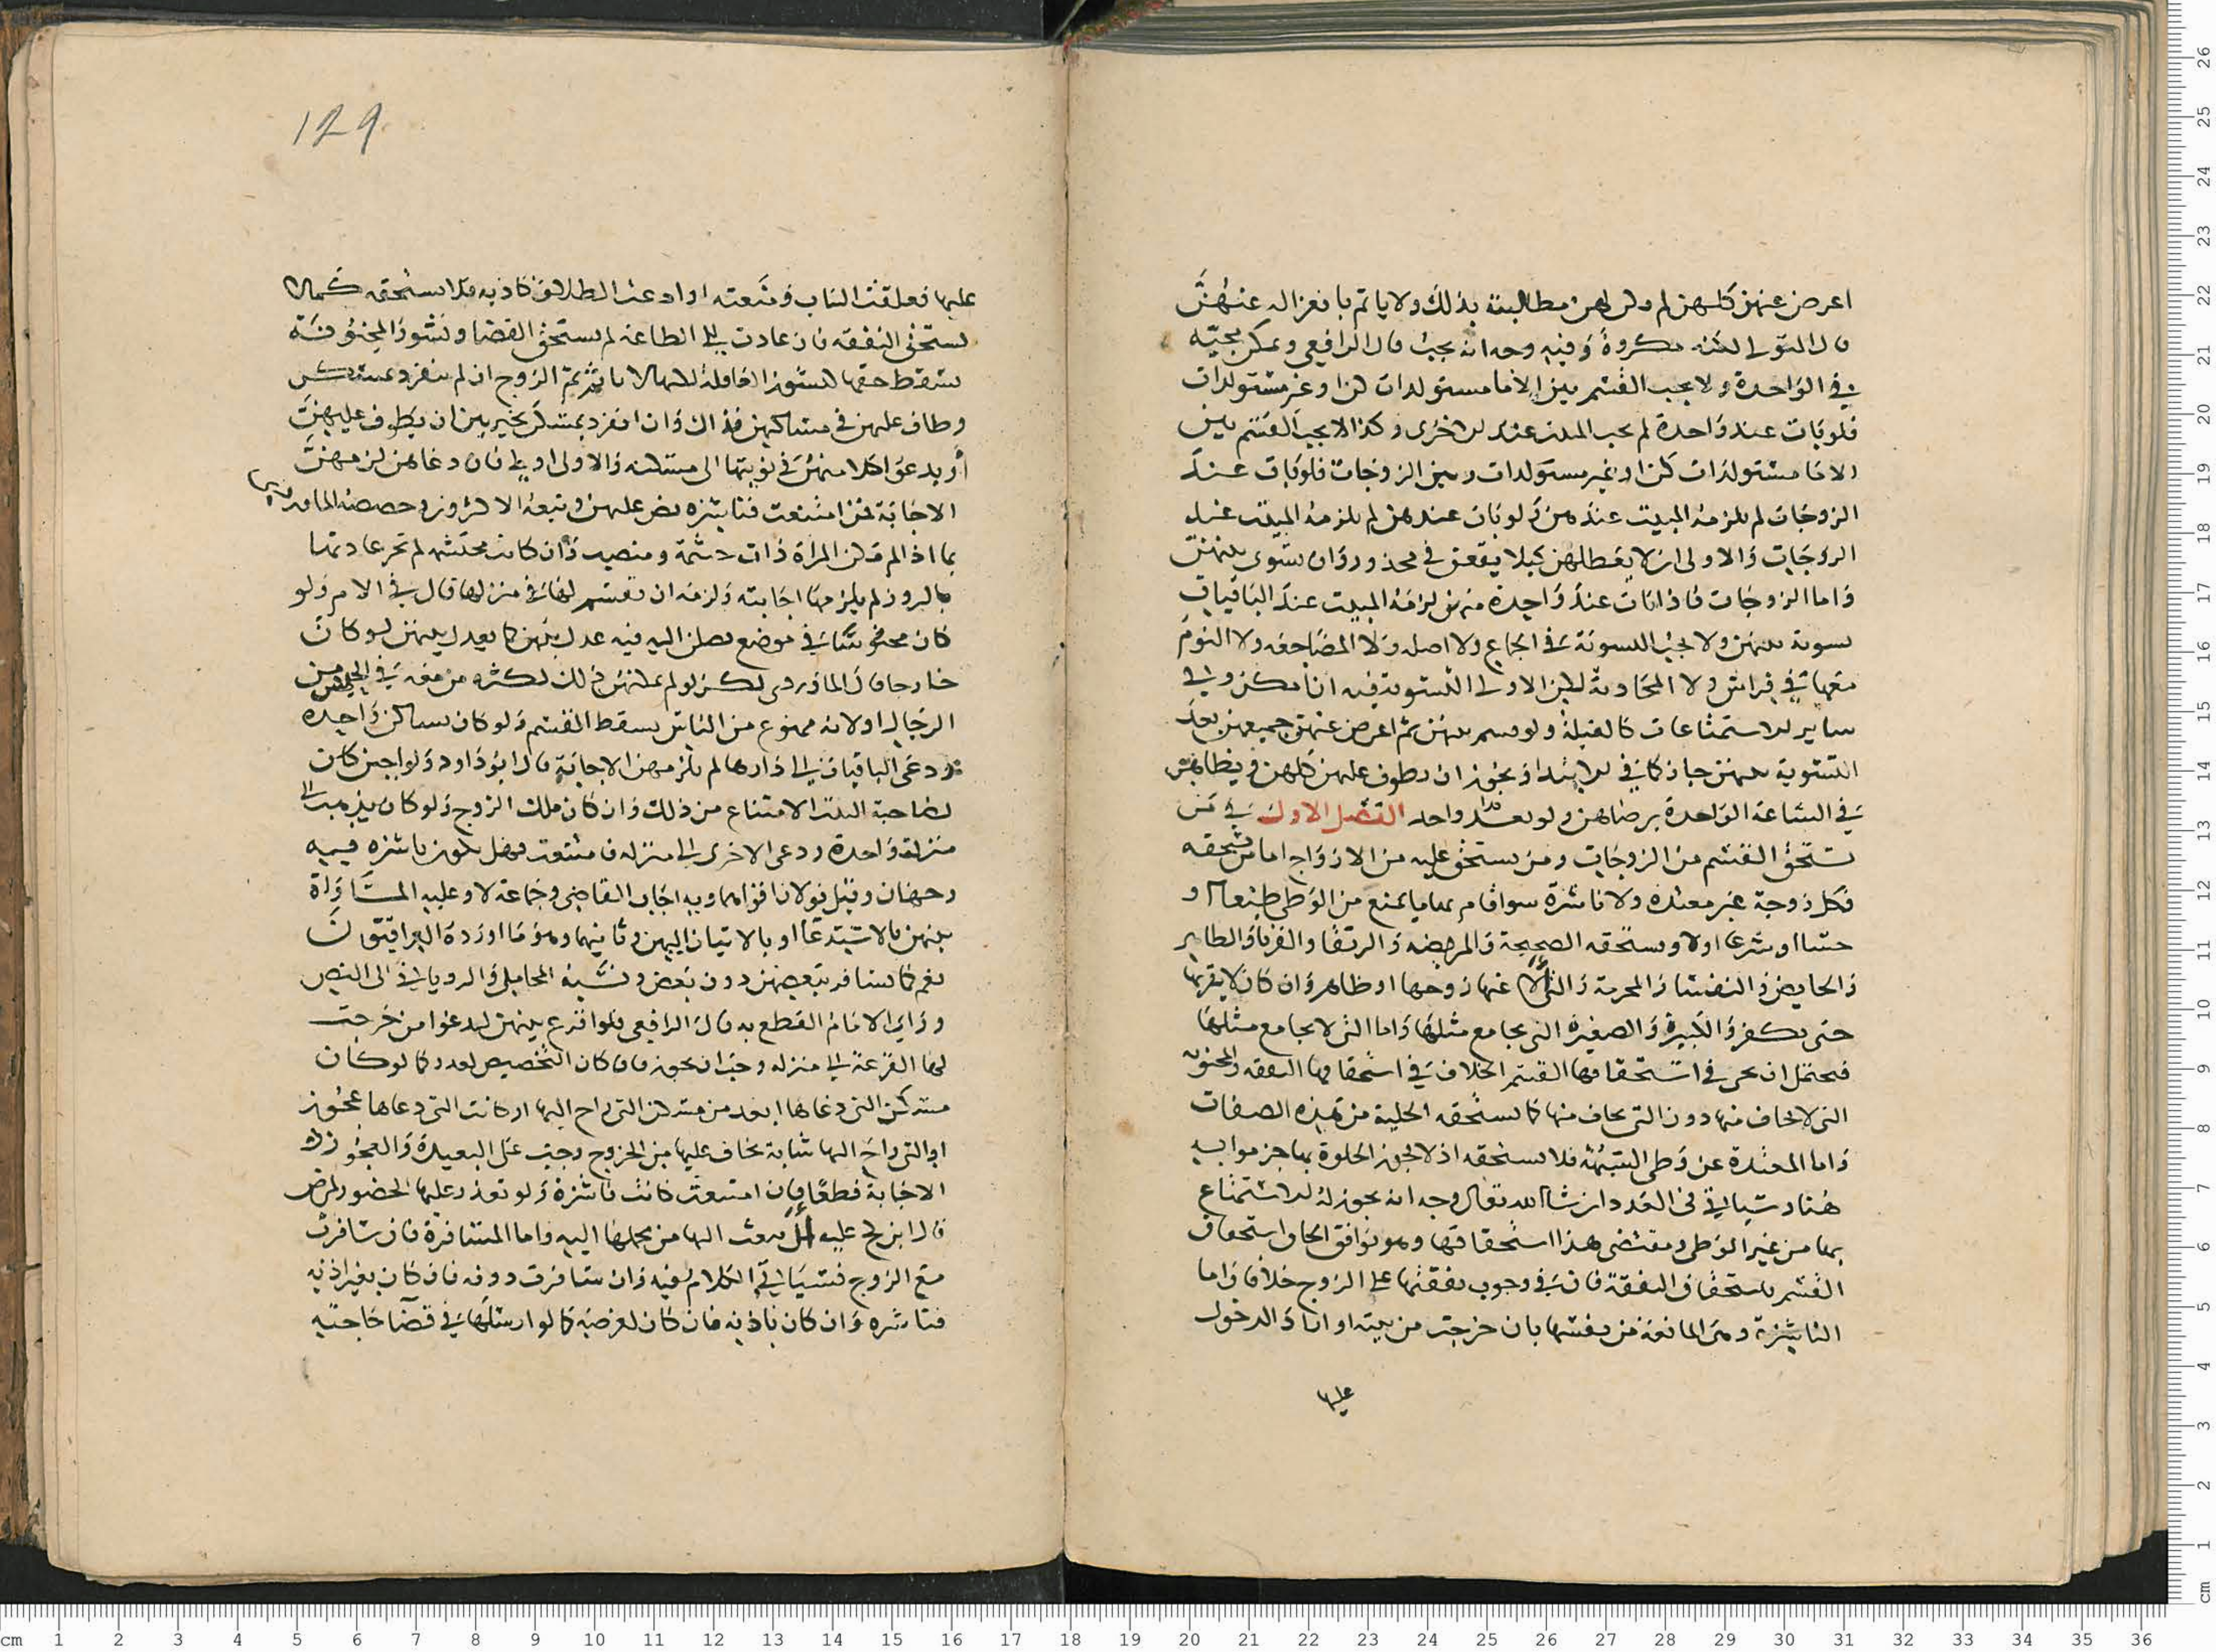 اعرض عنهن كلهن لم يكن لهن مطالبته بذلك ولا ياثم بانعزاله عنهن
قال المتولي لكنه مكروه وفيه وجه انه يجب قال الرافعي ويمكن مجيه
في الواحدة ولا يجب القسم بين الاما مستولدات كن او غير مستولدات
فلو بات عند واحدة لم يجب المبيت عند الاخرى وكذا لا يجب القسم بين
الاما مستولدات كن او غير مستولدات وبين الزوجات فلو بات عند
الزوجات لم يلزمه المبيت عندهن ولو بات عندهن لم يلزمه المبيت عند
الزوجات والاولى ان لا يعطلهن كيلا يقعن في محذور وان يسوى بينهن
واما الزوجات فاذا بات عند واحدة منهن لزمه المبيت عند الباقيات
تسوية بينهن ولا يجب التسوية في الجماع ولا اصله ولا المضاجعة ولا النوم
معها في فراش ولا المحادثة لكن الاولى التسوية فيه ان امكن وفي
ساير الاستمتاعات كالقبلة ولو قسم بينهن ثم اعرض عنهن جميعهن بعد
التسوية بينهن جاز كما في الابتدا ويجوز ان يطوف عليهن كلهن ويطاهن
في الساعة الواحدة برضاهن ولو بعد واحد الفصل الاول في من
تستحق القسم من الزوجات ومن يستحق عليه من الازواج اما من تستحقه
فكل زوجة غير معتدة ولا ناشزة سوا قام بها ما يمنع من الوطى طبعا او
حسا او شرعا اولا ويستحقه الصحيحة والمريضة والرتقا والقرنا والطاهر
والحايض والنفسا والمحرمة والتي الا عنها زوجها او ظاهر وان كان لا يقربها
حتى يكفر والكبيرة والصغيرة التي يجامع مثلها واما التي لا يجامع مثلها
فيحتمل ان يجي في استحقاقها القسم الخلاف في استحقاقها النفقه والمجنونه
التي لا يخاف منها دون التي يخاف منها كما يستحقه الخلية من هذه الصفات
واما المعتدة عن وطى الشبهة فلا يستحقه اذ لا يجوز الخلوة بها جزموا به
هنا وسياتي في العدد ان شا الله تعالى وجه انه يجوز له الاستمتاع
بها من غير الوطى ومقتضى هذا استحقاقها وهو يوافق الحاق استحقاق
القسم باستحقاق النفقة فان في وجوب نفقتها على الزوج خلافا واما
الناشزة وهي المانعة من نفسها بان خرجت من بيته او اراد الدخول
عليها
129
عليها فعلقت الباب ومنعته او ادعت الطلاق كاذبه فلا يستحقه كما لا
تستحق النفقه فان عادت الى الطاعة لم يستحق القضا ونشوز المجنونة
يسقط حقها كنشوز العاقلة لكنها لا تاثم ثم الزوج ان لم ينفرد بمسكن
وطاف عليهن في مساكنهن فذاك وان انفرد بمسكن تخير بين ان يطوف عليهن
او يدعوا كلا منهن في نوبتها الى مسكنه والاولى اولى فان دعاهن لزمهن
الاجابة فمن امتنعت فناشزه نص عليه وتبعه الاكثرون وخصصه الماوردي
بما اذا لم تكن المراة ذات حشمة ومنصب وان كانت محتشمه لم تجر عادتها
بالبروز لم يلزمها اجابته ولزمه ان يقسم لها في منزلها قال في الام ولو
كان محبوسا في موضع يصلن اليه فيه عدل بينهن كما يعدل بينهن لو كان
خارجا قال الماوردي لكن لو لم يمكنهن ذلك لكثره من معه في الحبس من
الرجال اولانه ممنوع من الناس يسقط القسم ولو كان يساكن واحدة
ودعى الباقيات الى دارها لم يلزمهن الاجابة قال ابو داود ولو اجبن كان
لصاحبة البيت الامتناع من ذلك وان كان ملك الزوج ولو كان يذهب الى
منزلة واحدة ودعى الاخرى الى منزله فامتنعت فهل تكون ناشزه فيه
وجهان وقيل قولان اقواهما وبه اجاب القاضي وجماعة لا وعليه المساواة
بينهن بالاستدعا او بالاتيان اليهن وثانيهما وهو ما اورده العراقيون
نعم كما يسافر ببعضهن دون بعض ونسبه المحاملي والروياني الى النص
وراى الامام القطع به قال الرافعي فلو اقرع بينهن ليدعوا من خرجت
لها القرعة الى منزله وجب ان يجوز فان كان التخصيص لعذر كما لو كان
مسكن التي دعاها ابعد من مسكن التي راح اليها او كانت التي دعاها عجوز
او التي راح اليها شابة يخاف عليها من الخروج وجبت على البعيدة والعجوز
الاجابة قطعا فان امتنعت كانت ناشزة ولو تعذر عليها الحضور لمرض
قال ابن كج عليه ان يبعث اليها من يحملها اليه واما المسافرة فان سافرت
مع الزوج فسياتي الكلام فيه وان سافرت دونه فان كان بغير اذنه
فناشزه وان كان باذنه فان كان لغرضه كما لو ارسلها في قضا حاجته